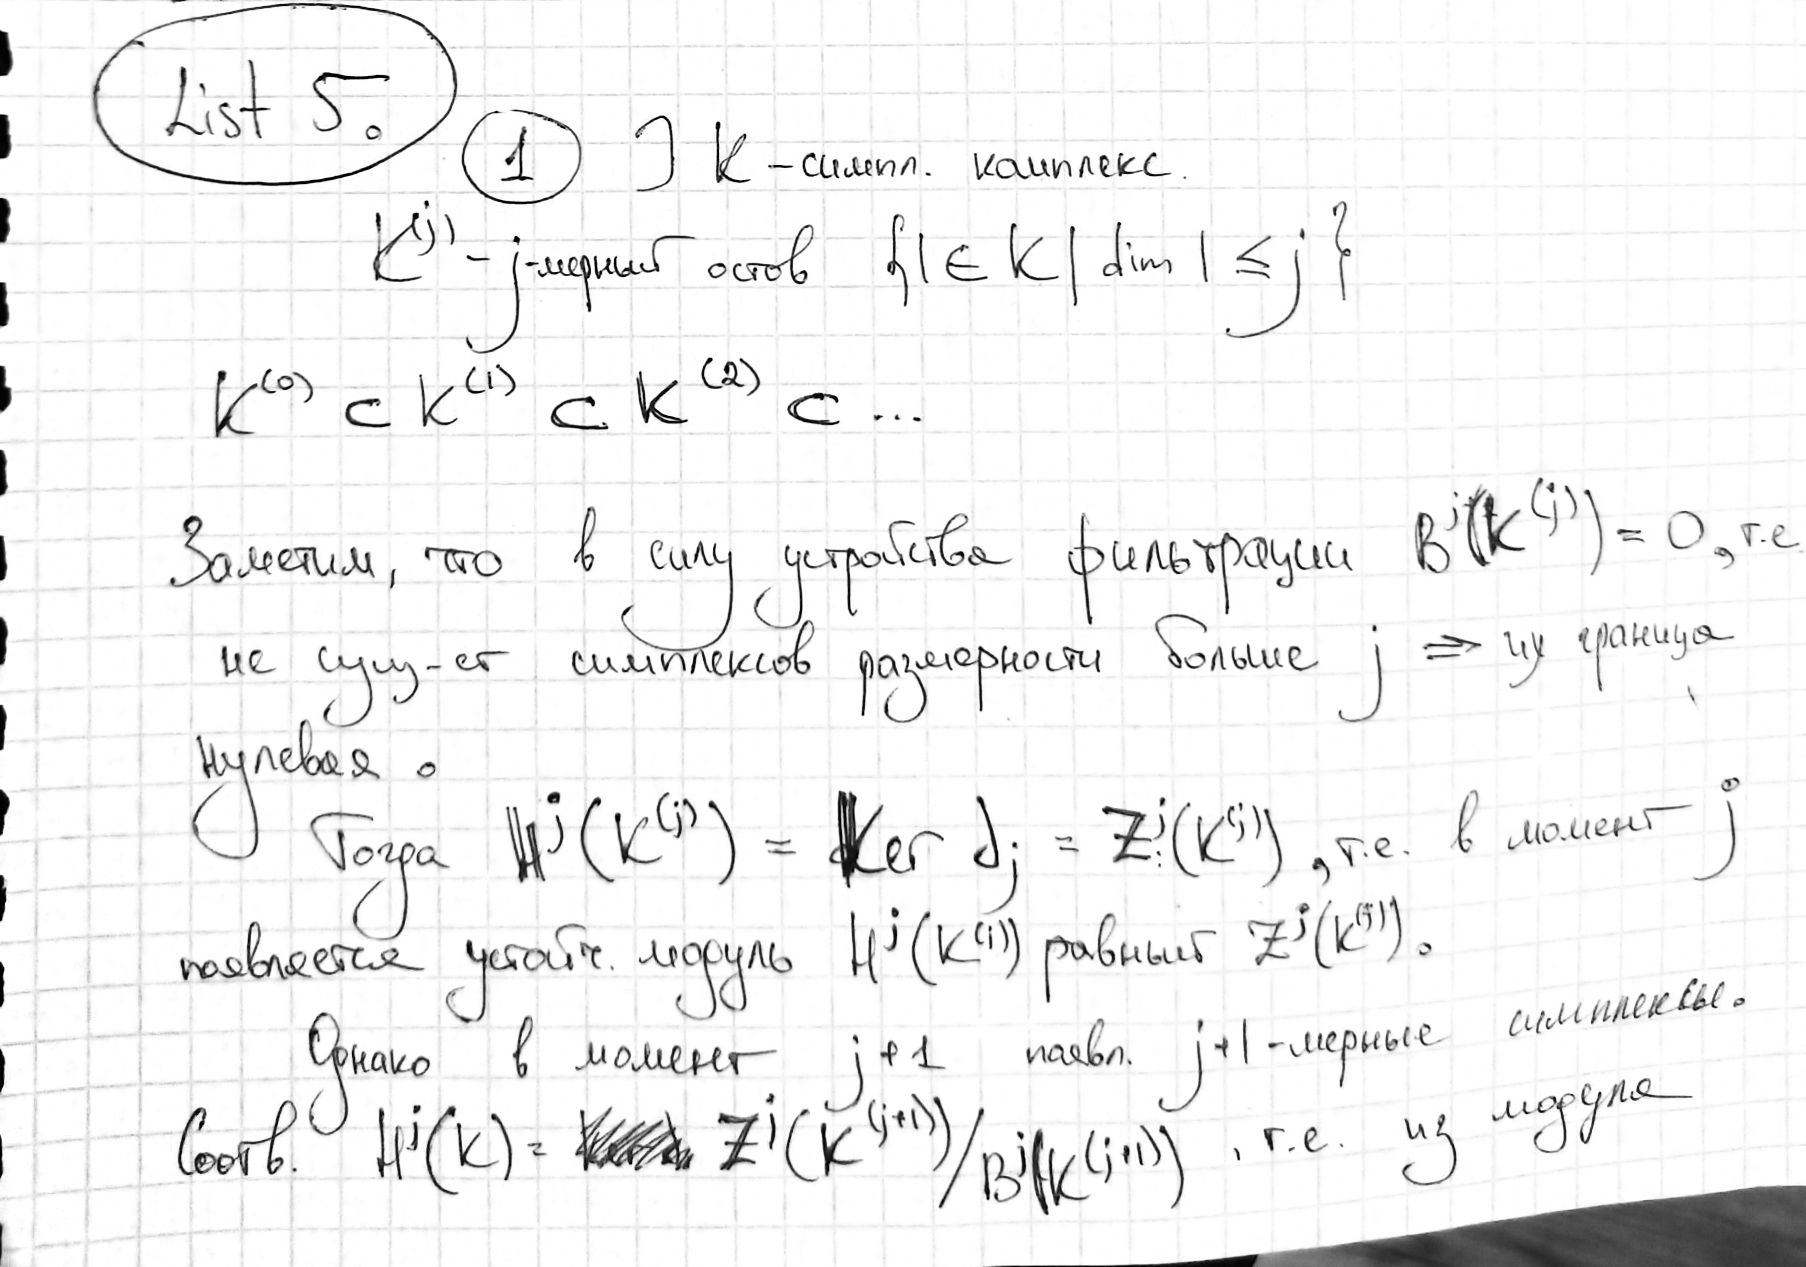 List 5.
1 ] K – симпл. комплекс.
K^(j) – j-мерный остов {I ∈ K | dim I ≤ j}
K^(0) ⊂ K^(1) ⊂ K^(2) ⊂ ...
Заметим, что в силу устройства фильтрации B^j(K^(j)) = 0, т.е.
не сущ-ет симплексов размерности больше j ⇒ их граница
нулевая.
Тогда H^j(K^(j)) = Ker ∂_j = Z^j(K^(j)), т.е. в момент j
появляется устойч. модуль H^j(K^(j)) равный Z^j(K^(j)).
Однако в момент j+1 появл. j+1-мерные симплексы.
Соотв. H^j(K) = Z^j(K^(j+1))/B^j(K^(j+1)), т.е. из модуля